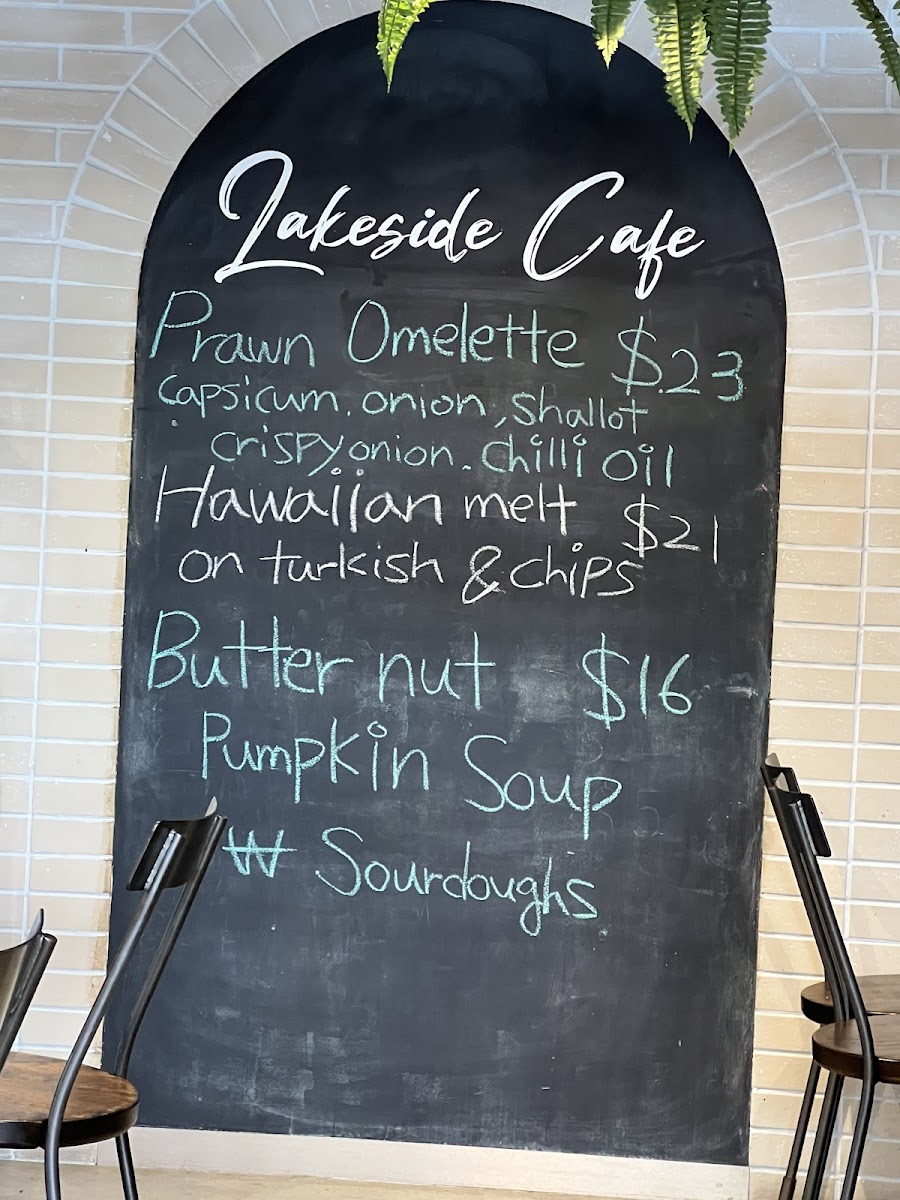 Lakeside Cafe
Prawn Omelette $23
Capsicum. onion, shallot
crispy onion. chilli oil
Hawaiian melt $21
on turkish & chips
Butter nut $16
Pumpkin Soup
₩ Sourdoughs